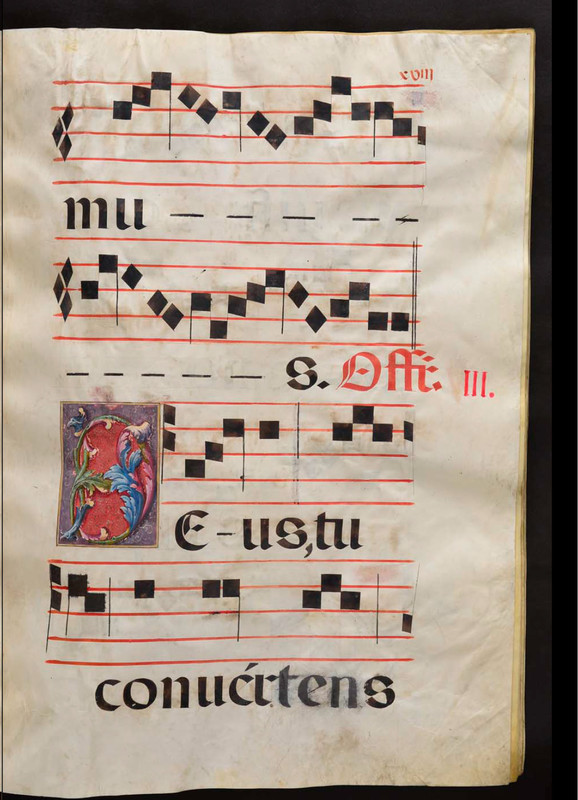 xviii
mu — — — — —
— — — — — s. Offi: III.
DE-us, tu
conuértens